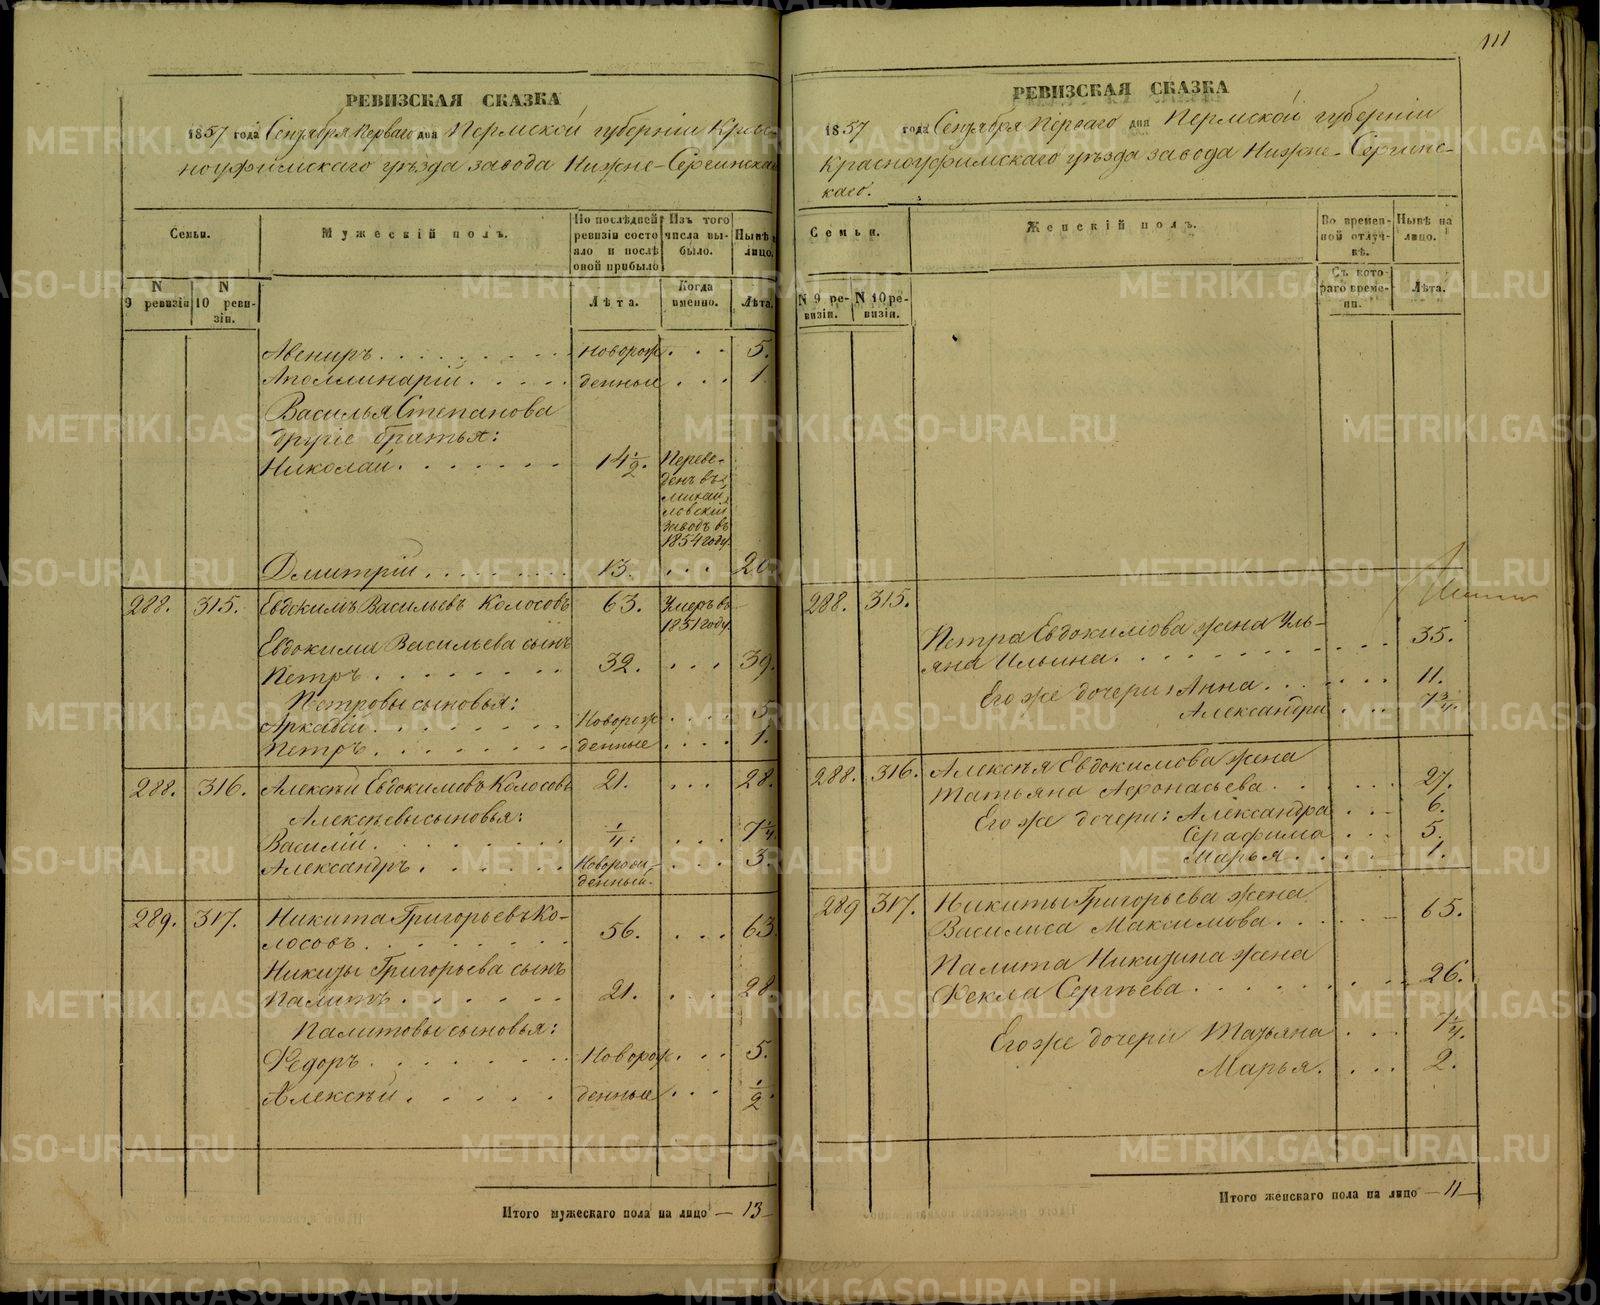 РЕВИЗСКАЯ СКАЗКА
1857 года Сентября Перваго дня Пермской губерніи Крас-
ноуфимскаго уѣзда завода Нижне-Сергинскаго
Семьи.
Мужескій полъ.
По послѣдней ревизіи состояло и послѣ оной прибыло
Изъ того числа выбыло.
Нынѣ на лицо.
N 9 ревизіи
N 10 ревизіи.
Лѣта.
Когда именно.
Лѣта.
Авениръ. новорож 5.
Аполлинарій. денные 1
Василья Степанова
другіе братья:
Николай. 14 1/2. Переве-
денъ въ
Михай
ловскій
заводъ въ
1854 году.
Дмитрій 13. 20
288. 315. Евдокимъ Васильевъ Колосовъ 63. Умеръ въ
1851 году.
Евдокима Васильева сынъ
Петръ 32. 39.
Петровы сыновья:
Аркадій Новорож 5
Петръ денные 1.
288. 316. Алексѣй Евдокимовъ Колосовъ 21. 28.
Алексѣевы сыновья:
Василій 1/4. 7 1/4
Александръ Новорож- 3.
денный.
289. 317. Никита Григорьевъ Ко-
лосовъ. 56. 63
Никиты Григорьева сынъ
Палитъ 21. 28
Палитовы сыновья:
Ѳедоръ Новорож 5.
Алексѣй денные 1/2.
Итого мужескаго пола на лицо — 13 —
111
РЕВИЗСКАЯ СКАЗКА
1857 года Сентября Перваго дня Пермской губерніи
Красноуфимскаго уѣзда завода Нижне-Сергинс-
каго.
Семьи.
Женскій полъ.
Во временной отлучкѣ.
Нынѣ на лицо.
N 9 ревизіи.
N 10 ревизіи.
Съ котораго времени.
Лѣта.
288. 315.
Петра Евдокимова жена Уль-
яна Ильина. 35.
Его же дочери: Анна. 11.
Александра 7 3/4.
288. 316. Алексѣя Евдокимова жена
Татьяна Афонасьева. 27.
Его же дочери: Александра 6.
Серафима 5.
Марья. 1.
289 317. Никиты Григорьева жена
Василиса Максимова. 65.
Палита Никитина жена
Ѳекла Сергѣева. 26.
Его же дочери Татьяна 7 1/4.
Марья. 2.
Итого женскаго пола на лицо — 11 —
METRIKI.GASO-URAL.RU